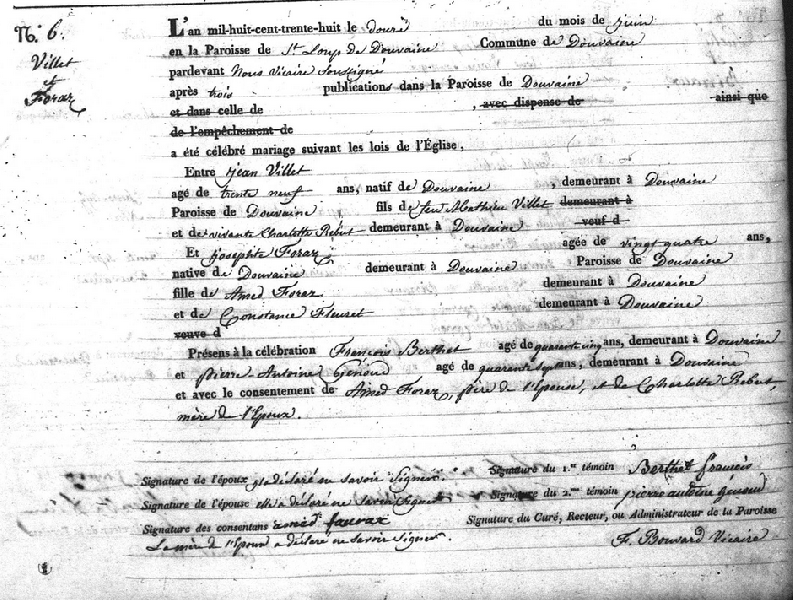 N.° 6.
Villet
et
Foraz
L'an mil-huit-cent-trente-huit le douze du mois de Juin
en la Paroisse de St Loup de Douvaine Commune de Douvaine
pardevant Nous Vicaire Soussigné
après trois publications dans la Paroisse de Douvaine
et dans celle de , avec dispense de ainsi que
de l'empêchement de
a été célébré mariage suivant les lois de l'Église,
Entre Jean Villet
agé de trente neuf ans, natif de Douvaine , demeurant à Douvaine
Paroisse de Douvaine fils de feu Mathieu Villet demeurant à
et de vivante Charlotte Rebut demeurant à Douvaine veuf d
Et Josephte Foraz agée de vingt quatre ans,
native de Douvaine demeurant à Douvaine Paroisse de Douvaine
fille de Amed Foraz demeurant à Douvaine
et de Constance Fleuret demeurant à Douvaine
veuve d
Présens à la célébration François Berthet agé de quarante cinq ans, demeurant à Douvaine
et Pierre Antoine Genoud agé de quarante sept ans, demeurant à Douvaine
et avec le consentement de Amed Foraz, père de l'épouse, et de Charlotte Rebut,
mère de l'Epoux.
Signature de l'époux qui a déclaré ne savoir Signer. Signature du 1.er témoin Berthet françois
Signature de l'épouse elle a déclaré ne savoir Signer Signature du 2.me témoin pierre antoine genoud
Signature des consentans amed foraz Signature du Curé, Recteur, ou Administrateur de la Paroisse
La mère de l'Epoux a déclaré ne savoir Signer. F. Bouvard Vicaire